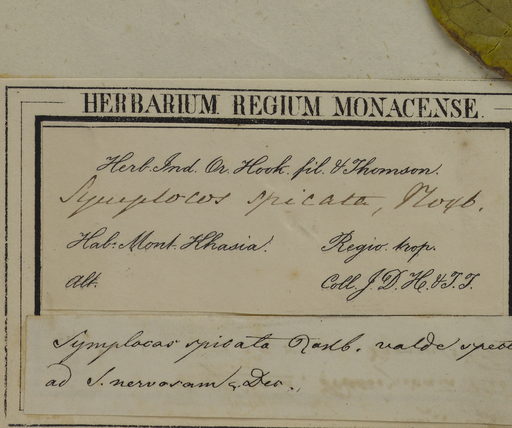 HERBARIUM REGIUM MONACENSE.
Herb. Ind. Or. Hook. fil. & Thomson.
Symplocos spicata, Roxb.
Hab: Mont. Khasia. Regio trop.
Alt. Coll. J. D. H. & T. T.
Symplocos spicata Roxb. valde
ad S. nervosam